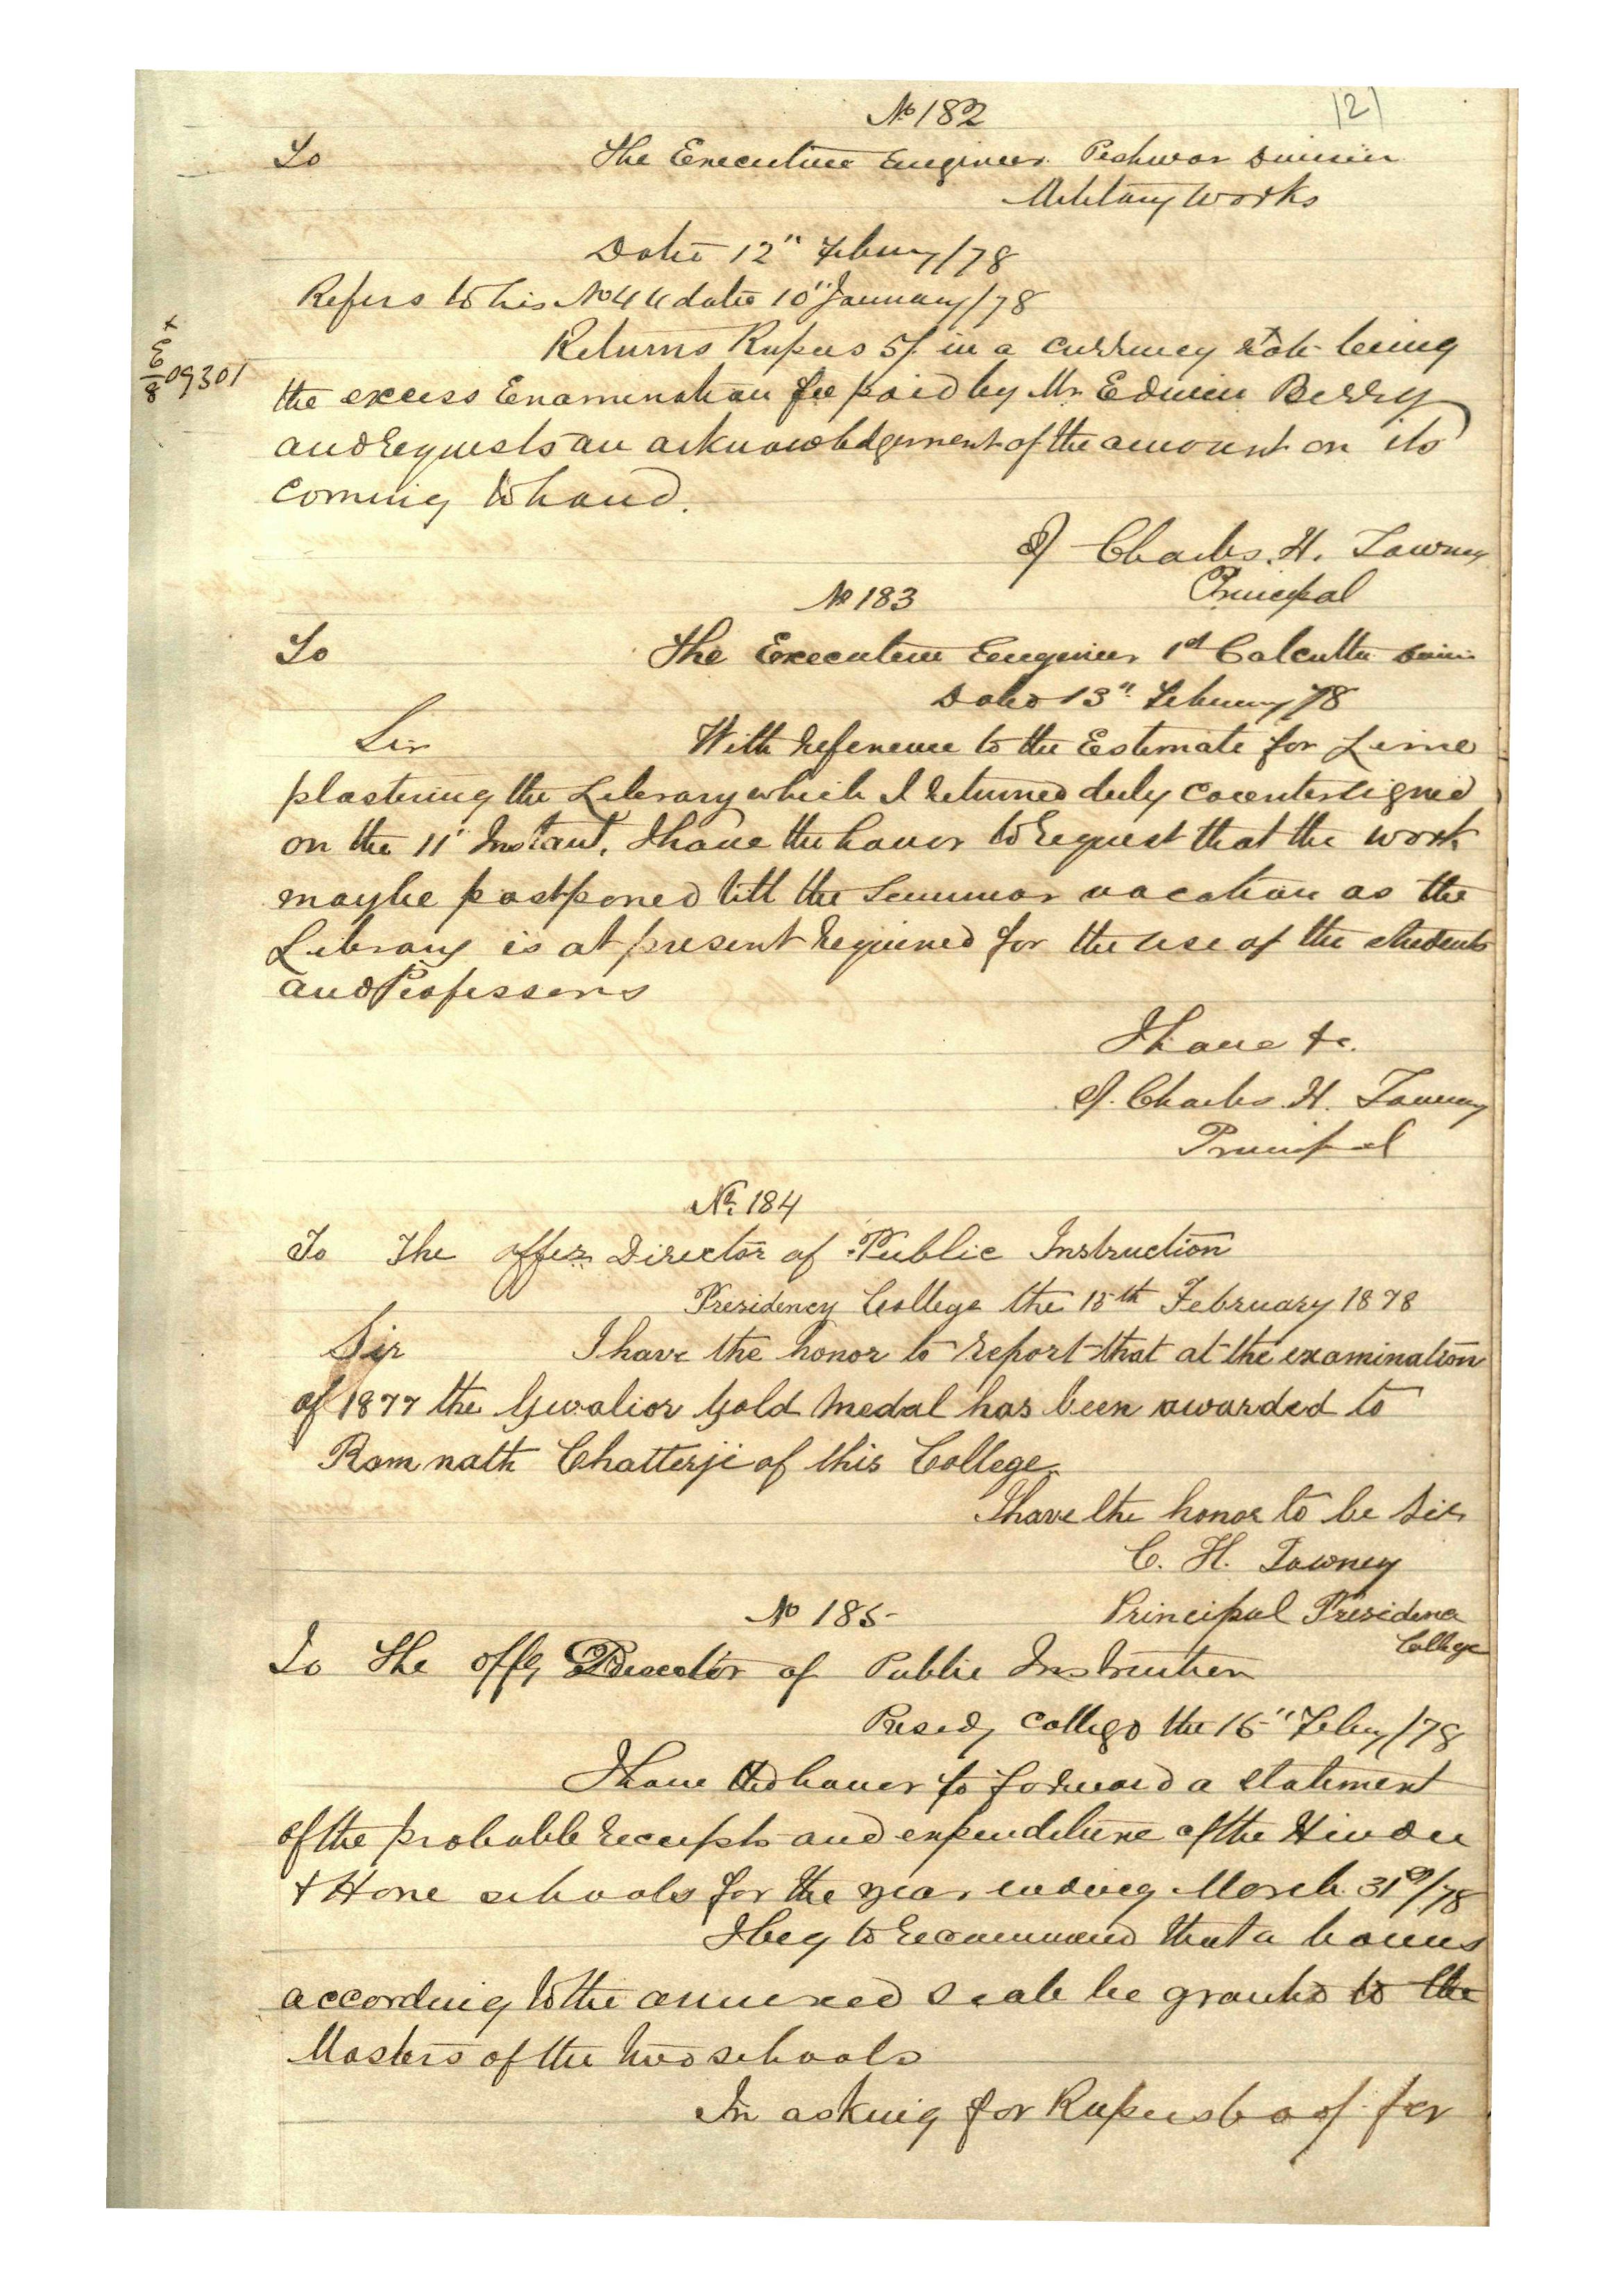 No 182
121
To The Executive Engineer Peshwar Division
Military Works
Dated 12" February/78
Refers to his No 44 dated 10" January/78
Returns Rupees 5/ in a currency note being
the excess Examination fee paid by Mr Edwin Berry
and requests an acknowledgement of the amount on its
coming to hand.
E/8 09301
Sd/ Charles. H. Tawney
Principal
No 183
To The Executive Engineer 1st Calcutta
Dated 13" February/78
Sir With reference to the Estimate for Lime
plastering the Library which I returned duly countersigned
on the 11" Instant, I have the honor to request that the work
may be postponed till the Summer vacation as the
Library is at present required for the use of the students
and Professors
I have &c.
Sd. Charles. H. Tawney
Principal
No. 184
To The Director of Public Instruction
Presidency College the 15th February 1878
Sir I have the honor to report that at the examination
of 1877 the Gwalior Gold Medal has been awarded to
Ram nath Chatterji of this College.
I have the honor to be Sir
C. H. Tawney
Principal Presidency
College
No 185
To The Offg Director of Public Instruction
Presidy College the 15" Feby/78
I have the honor to forward a statement
of the probable receipts and expenditure of the Hindu
& Hare schools for the year ending March 31st/78
I beg to recommend that a bonus
according to the annexed Scale be granted to the
Masters of the two schools
In asking for Rupees 60/ for